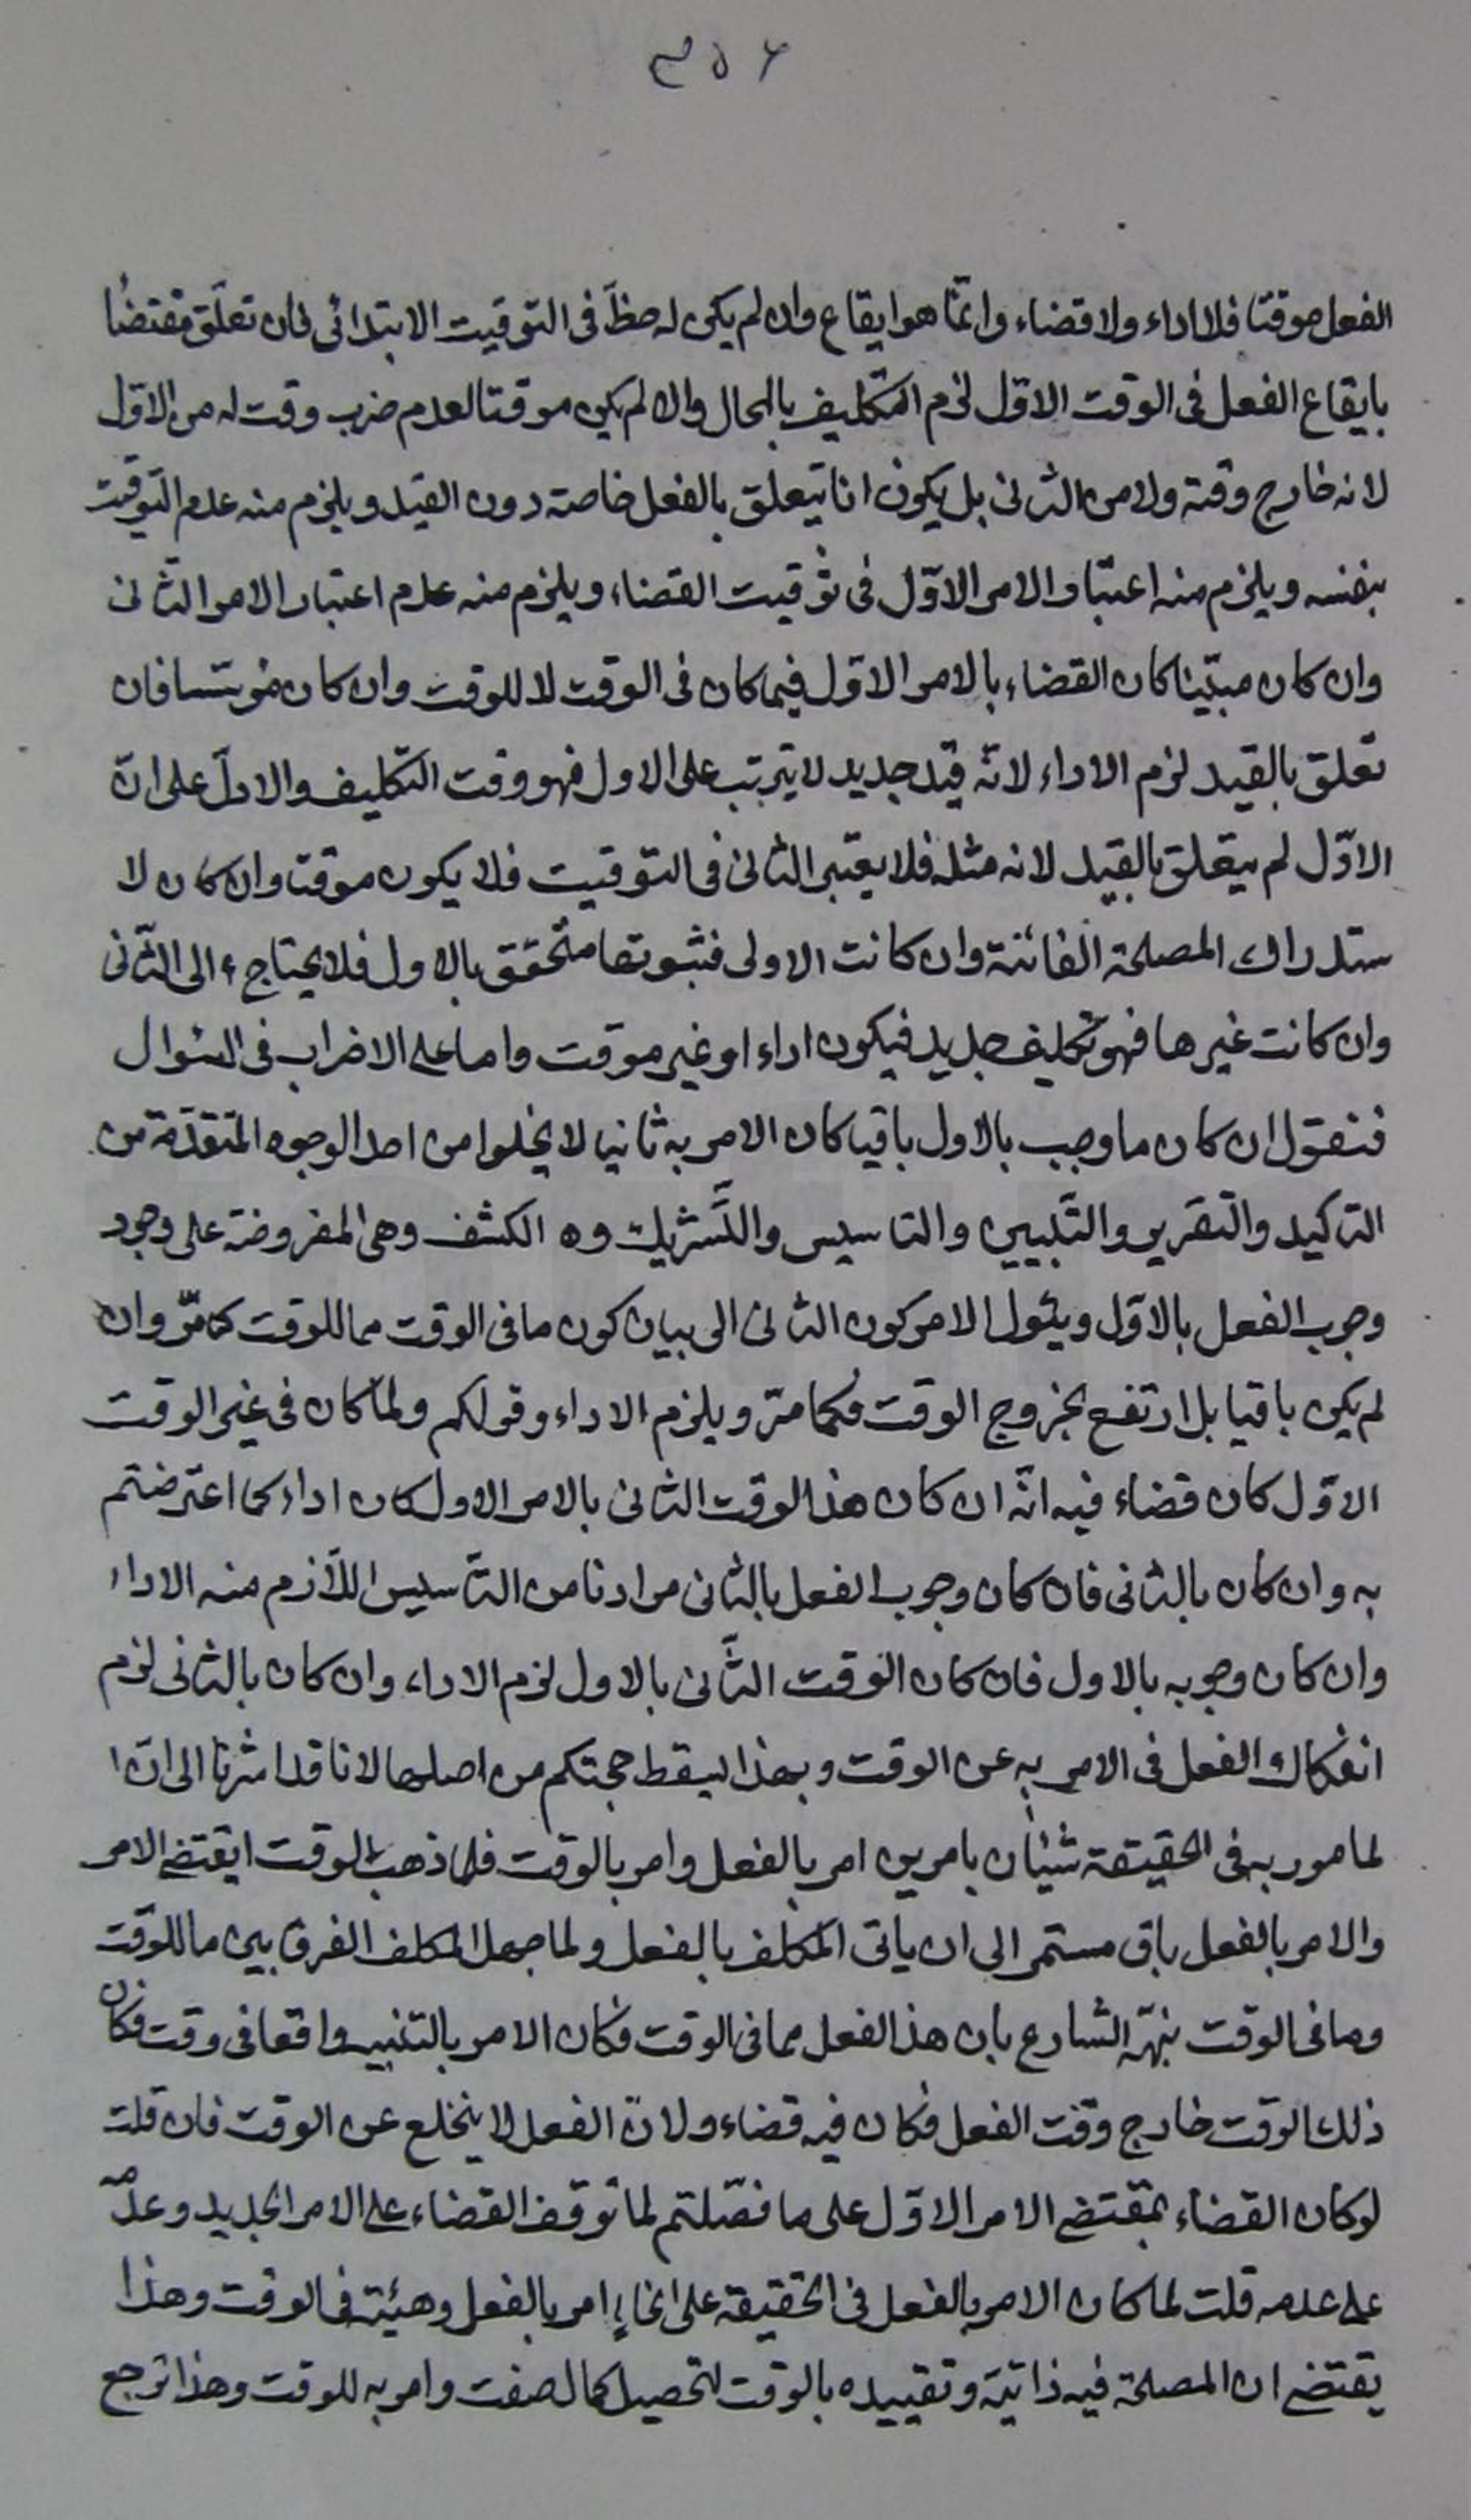 ٣٥٦
الفعل موقتا فلا اداء ولا قضاء وانّما هو ايقاع وان لم يكن له حظّ فى التوقيت الابتدائى فان تعلّق مقتضا
بايقاع الفعل فى الوقت الاوّل لزم التكليف بالمحال والا لم يكن موقتا لعدم ضرب وقت له من الاوّل
لانه خارج وقته ولا من الثانى بل يكون انا يتعلق بالفعل خاصة دون القيد ويلزم منه عدم التوقيت
بنفسه ويلزم منه اعتبار الامر الاوّل فى توقيت القضاء ويلزم منه عدم اعتبار الامر الثانى
وان كان مبيّنا كان القضاء بالامر الاوّل فيما كان فى الوقت لا للوقت وان كان مؤسسا فان
تعلق بالقيد لزم الاداء لانّه قيد جديد لا يترتب على الاول فهو وقت التكليف والا دلّ على انّ
الاوّل لم يتعلق بالقيد لانه مثله فلا يعتبر الثانى فى التوقيت فلا يكون موقتا وان كان لا
ستدراك المصلحة الفائتة وان كانت الاولى فثبوتها متحقق بالاول فلا يحتاج ء الى الثّانى
وان كانت غيرها فهو تكليف جديد فيكون اداء او غير موقت واما على الاضراب فى السّوال
فنقول ان كان ما وجب بالاول باقيا كان الامر به ثانيا لا يخلوا من احد الوجوه المتقدّمة من
التاكيد والتقرير والتّبيين والتاسيس والتّشريك وه الكشف وهى المفروضة على وجود
وجوب الفعل بالاوّل ويئول الامر كون الثانى الى بيان كون ما فى الوقت مما للوقت كما مرّ وان
لم يكن باقيا بل ارتفع بخروج الوقت فكما مرّ ويلزم الاداء وقولكم ولما كان فى غير الوقت
الاوّل كان قضاء فيه انّه ان كان هذا الوقت الثانى بالامر الاول كان اداء كما اعترضتم
به وان كان بالثانى فان كان وجوب الفعل بالثانى مرادنا من التّاسيس اللّازم منه الاداء
وان كان وجوبه بالاول فان كان الوقت الثّانى بالاول لزم الاداء وان كان بالثانى لزم
انفكاك الفعل فى الامر به عن الوقت وبهذا يسقط حجتكم من اصلها لانا قد اشرنا الى انّ ا
لمامور به فى الحقيقة شيئان بامرين امر بالفعل وامر بالوقت فلما ذهب الوقت ايقتضى الامر
والامر بالفعل باق مستمر الى ان ياتى المكلف بالفعل ولما جهل المكلف الفرق بين ما للوقت
وما فى الوقت نبّه الشارع بان هذا الفعل مما فى الوقت فكان الامر بالتنبيه واقعا فى وقت فكان
ذلك الوقت خارج وقت الفعل فكان فيه قضاء ولانّ الفعل لا ينخلع عن الوقت فان قلت
لو كان القضاء بمقتضى الامر الاوّل على ما فصّلتم لما توقف القضاء على الامر الجديد وعدمه
على عدمه قلت لما كان الامر بالفعل فى الحقيقة على انحاء امر بالفعل وهيئته فى الوقت وهذا
يقتضى ان المصلحة فيه ذاتيّة وتقييده بالوقت لتحصيل كمال صفت وامر به للوقت وهذا ترجع